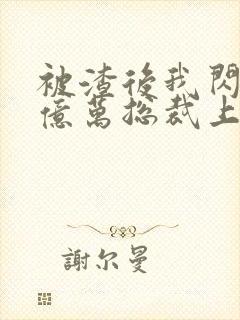 被渣後我閃
億萬總裁上
謝尔曼